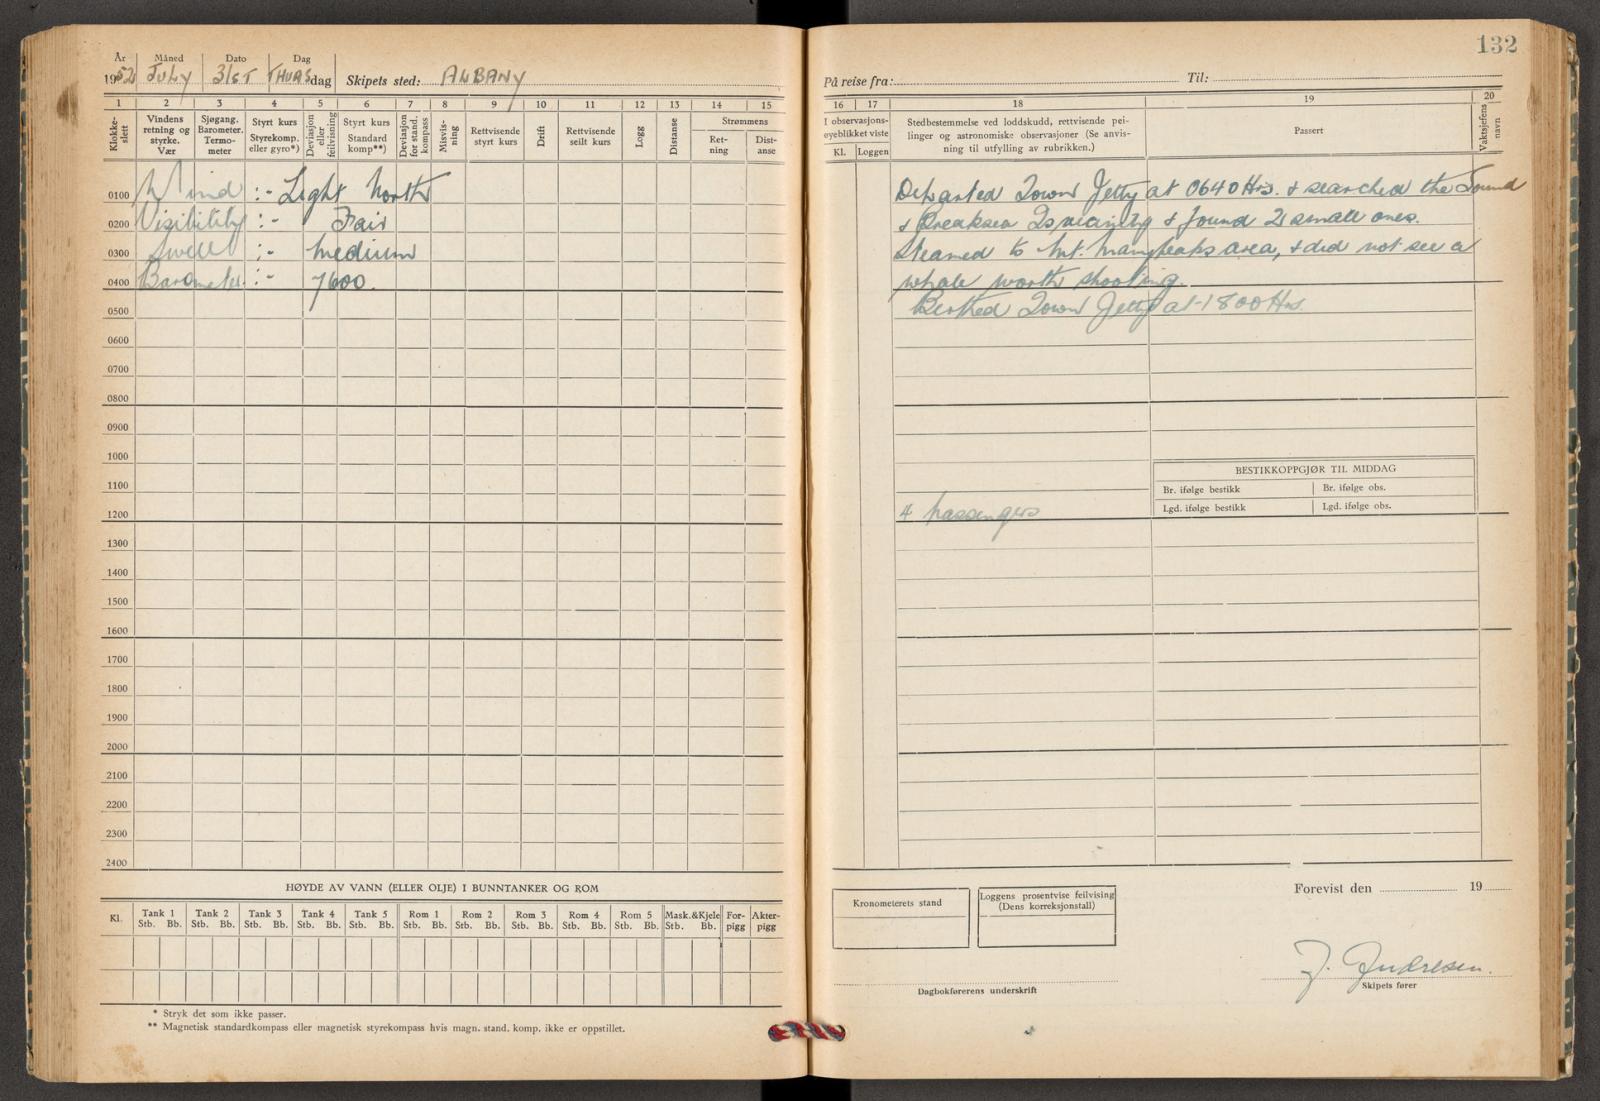 132
År Måned Dato Dag
1952 JULY 31ST THURSdag Skipets sted: ALBANY
På reise fra: Til:
1 2 3 4 5 6 7 8 9 10 11 12 13 14 15
16 17 18 19 20
Klokke-slett
Vindens retning og styrke. Vær
Sjøgang. Barometer. Termo-meter
Styrt kurs Styrekomp. eller gyro*)
Deviasjon eller feilvisning
Styrt kurs Standard komp**)
Deviasjon for stand. kompass
Misvis-ning
Rettvisende styrt kurs
Drift
Rettvisende seilt kurs
Logg
Distanse
Strømmens
Ret-ning
Dist-anse
I observasjons-øyeblikket viste
Kl. Loggen
Stedbestemmelse ved loddskudd, rettvisende pei-
linger og astronomiske observasjoner (Se anvis-
ning til utfylling av rubrikken.)
Passert
Vaktsjefens navn
0100 Wind :- Light North
0200 Visibility :- Fair
0300 Swell :- Medium
0400 Barometer :- 7600.
0500
0600
0700
0800
0900
1000
1100
1200
1300
1400
1500
1600
1700
1800
1900
2000
2100
2200
2300
2400
Departed Town Jetty at 0640 Hrs. & searched the Sound
& Breaksea Is vicinity & found 2 small ones.
Steamed to Mt. Manypeaks area, & did not see a
whale worth shooting.
Berthed Town Jetty at 1800 Hrs.
BESTIKKOPPGJØR TIL MIDDAG
Br. ifølge bestikk Br. ifølge obs.
Lgd. ifølge bestikk Lgd. ifølge obs.
4 passengers
HØYDE AV VANN (ELLER OLJE) I BUNNTANKER OG ROM
Kl. Tank 1 Tank 2 Tank 3 Tank 4 Tank 5 Rom 1 Rom 2 Rom 3 Rom 4 Rom 5 Mask.&Kjele For-pigg Akter-pigg
Stb. Bb. Stb. Bb. Stb. Bb. Stb. Bb. Stb. Bb. Stb. Bb. Stb. Bb. Stb. Bb. Stb. Bb. Stb. Bb. Stb. Bb.
* Stryk det som ikke passer.
** Magnetisk standardkompass eller magnetisk styrekompass hvis magn. stand. komp. ikke er oppstillet.
Kronometerets stand
Loggens prosentvise feilvising
(Dens korreksjonstall)
Forevist den 19
Dagbokførerens underskrift
J. Andresen.
Skipets fører